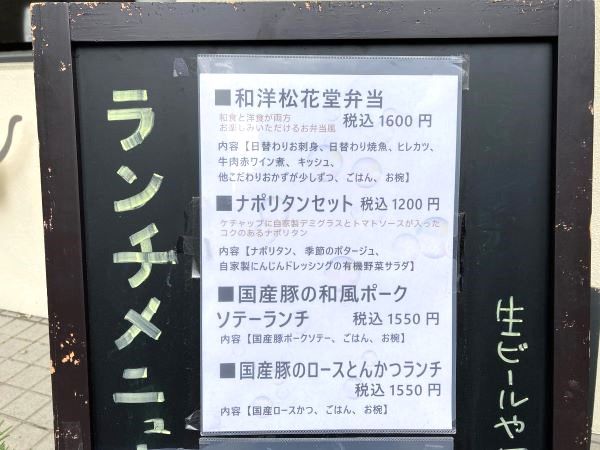 ランチメニュ
■和洋松花堂弁当
和食と洋食が両方
お楽しみいただけるお弁当風
税込 1600 円
内容【日替わりお刺身、日替わり焼魚、ヒレカツ、
牛肉赤ワイン煮、キッシュ、
他こだわりおかずが少しずつ、ごはん、お椀】
■ナポリタンセット 税込 1200 円
ケチャップに自家製デミグラスとトマトソースが入った
コクのあるナポリタン
内容【ナポリタン、季節のポタージュ、
自家製にんじんドレッシングの有機野菜サラダ】
■国産豚の和風ポーク
ソテーランチ 税込 1550 円
内容【国産豚ポークソテー、ごはん、お椀】
■国産豚のロースとんかつランチ
税込 1550 円
内容【国産ロースかつ、ごはん、お椀】
生ビールや